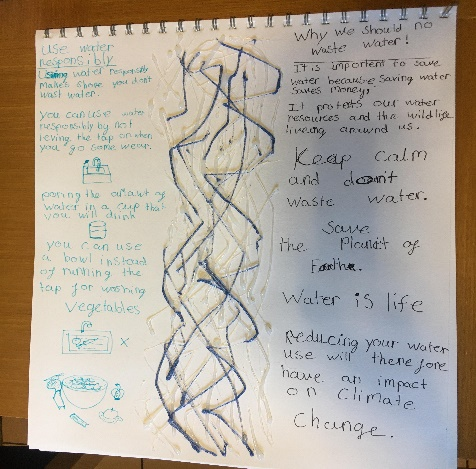 Use water
responsibly
Using water responsibly
makes shore you dont
wast water.
you can use water
responsibly by not
leving the tap on when
you go some wear.
poring the amount of
water in a cup that
you will drink
you can use
a bowl instead
of running the
tap for washing
Vegetables
X
Why we should no
waste water!
It is important to save
water because saving water
saves money,
It protects our water
resources and the wildlife
living around us.
Keep calm
and don't
waste water.
Save
the Planet of
Earth.
Water is life
Reducing your water
use will therefore
have an impact
on climate
change.